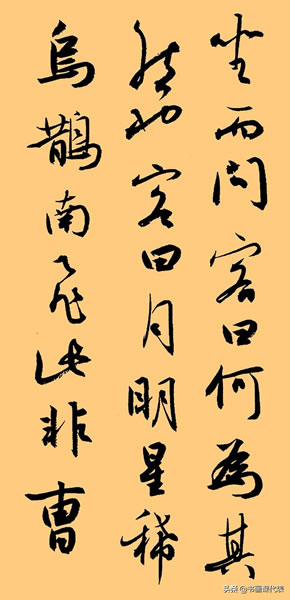 坐而问客曰何为其
然也客曰月明星稀
乌鹊南飞此非曹
头条@书画课代表